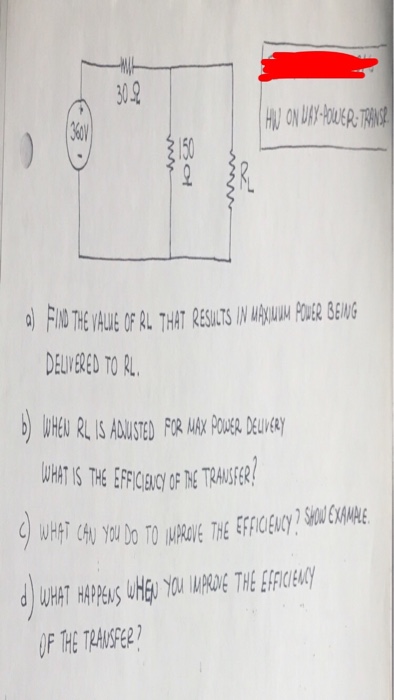 30 Ω
360V
+
-
150
Ω
RL
HW ON MAX-POWER-TRANSF
a) FIND THE VALUE OF RL THAT RESULTS IN MAXIMUM POWER BEING
DELIVERED TO RL.
b) WHEN RL IS ADJUSTED FOR MAX POWER DELIVERY
WHAT IS THE EFFICIENCY OF THE TRANSFER?
c) WHAT CAN YOU DO TO IMPROVE THE EFFICIENCY? SHOW EXAMPLE.
d) WHAT HAPPENS WHEN YOU IMPROVE THE EFFICIENCY
OF THE TRANSFER?